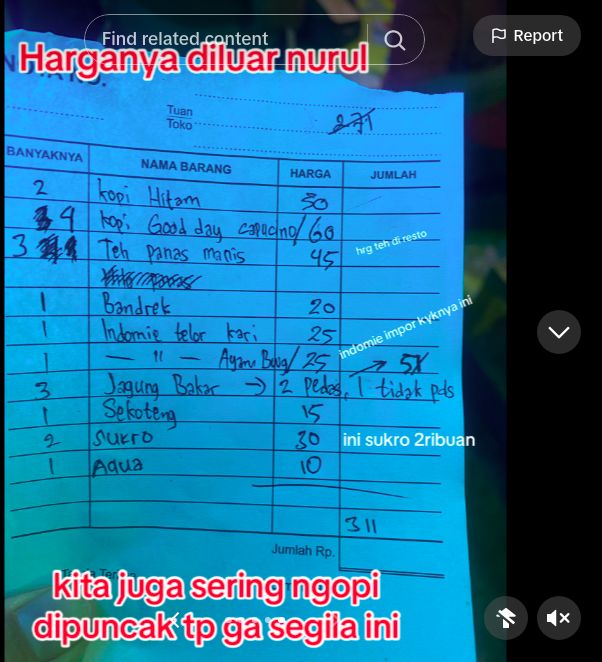 Find related content
Report
Harganya diluar nurul
Tuan
Toko
271
BANYAKNYA NAMA BARANG HARGA JUMLAH
2 kopi Hitam 30
4 kopi Good day capucino/ 60
3 Teh panas manis 45
hrg teh di resto
1 Bandrek 20
1 Indomie telor kari 25
indomie impor kyknya ini
1 — " — Ayam / 25 → 51
3 Jagung Bakar → 2 pedas, 1 tidak pds
1 Sekoteng 15
2 SUKRO 30 ini sukro 2ribuan
1 Aqua 10
311
Jumlah Rp.
kita juga sering ngopi
dipuncak tp ga segila ini